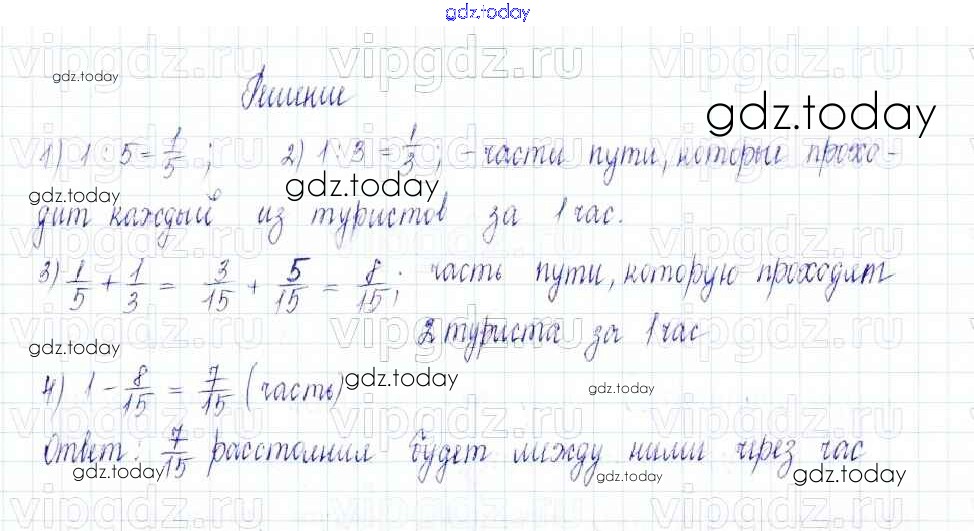 gdz.today
gdz.today
Решение
gdz.today
1) 1 : 5 = 1/5 ; 2) 1 : 3 = 1/3 ; - части пути, которые прохо-
gdz.today gdz.today
дит каждый из туристов за 1 час.
3) 1/5 + 1/3 = 3/15 + 5/15 = 8/15 ; часть пути, которую проходят
2 туриста за 1 час
gdz.today
4) 1 - 8/15 = 7/15 (часть) gdz.today gdz.today
Ответ: 7/15 расстояния будет между ними через час
gdz.today gdz.today gdz.today
vipgdz.ru vipgdz.ru vipgdz.ru